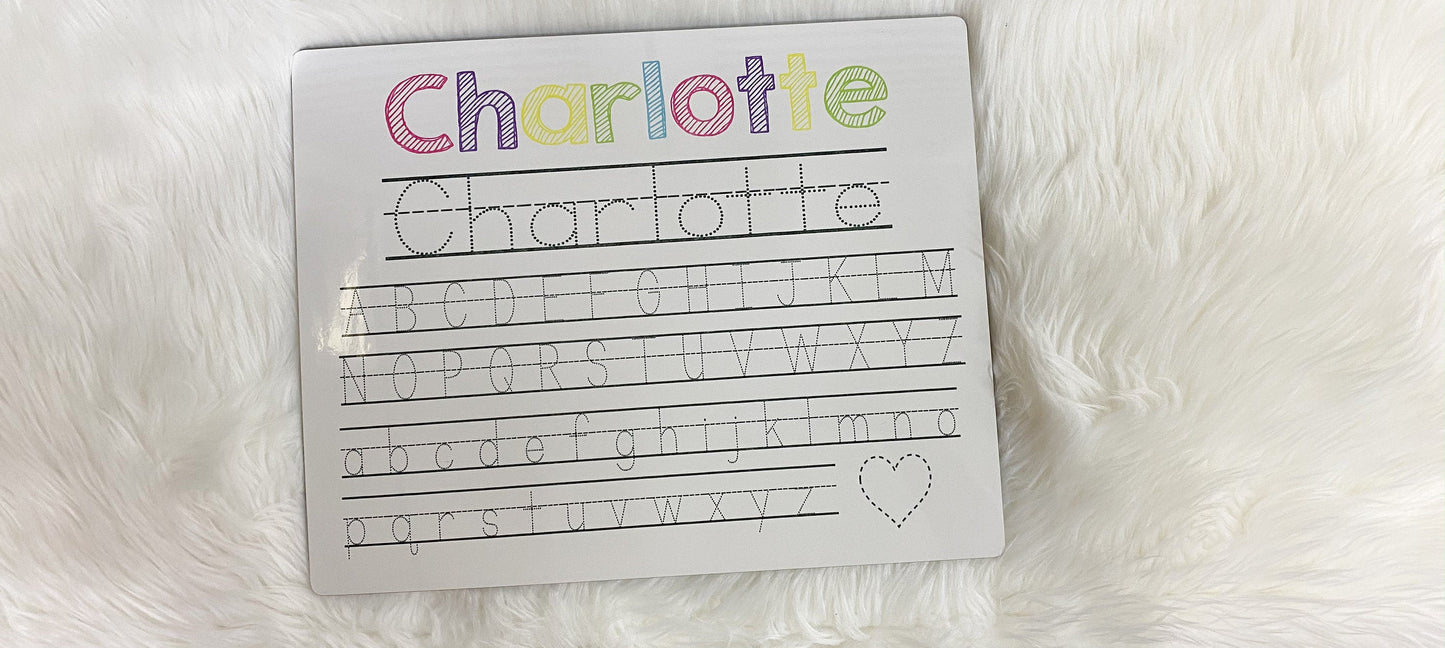 Charlotte
Charlotte
A B C D E F G H I J K L M
N O P Q R S T U V W X Y Z
a b c d e f g h i j k l m n o
p q r s t u v w x y z